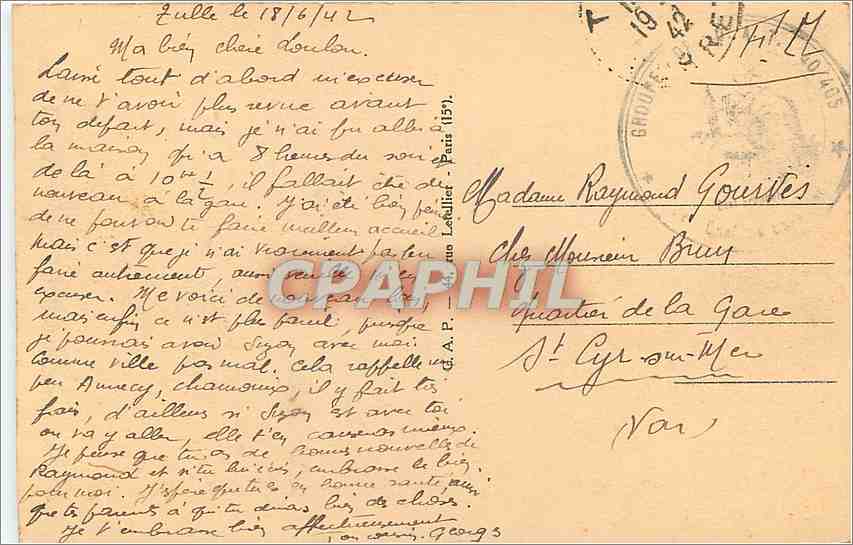 Tulle le 18/6/42
Ma bien chère Loulou.
Laisse tout d'abord m'excuser
de ne t'avoir plus revue avant
ton départ, mais je n'ai pu aller à
la maison qu'à 8 heures du soir et
de là à 10 H 1/2, il fallait être de
nouveau à la gare. J'ai été bien peiné
de ne pouvoir te faire meilleur accueil
mais c'est que je n'ai vraiment pas pu
faire autrement, aussi veuille m'en
excuser. Me voici de nouveau
mais enfin ce n'est plus pareil, puisque
je pourrais avoir Suzon avec moi
comme ville pas mal. Cela rappelle un
peu Annecy, Chamonix, il y fait très
frais, d'ailleurs si Suzon est avec toi
ou va y aller, elle t'en causera mieux.
Je pense que tu as de bonnes nouvelles de
Raymond et si tu lui écris, embrasse le bien
pour moi. J'espère que tu es en bonne santé ainsi
que tes parents à qui tu diras bien des choses.
Je t'embrasse bien affectueusement
ton cousin. Georges
G. A. P. - 44, rue Letellier - Paris (15e).
T
19
42
GROUPE
40/405
F. M
Madame Raymond Gourvès
chez Monsieur Brun
Quartier de la Gare
St Cyr-sur-Mer
(Var)
CPAPHIL